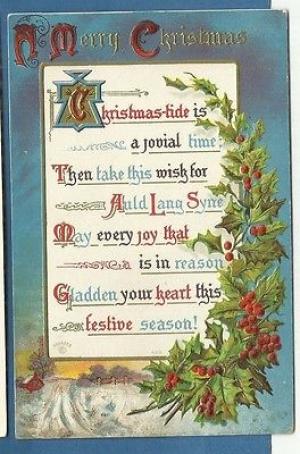 A Merry Christmas
Christmas-tide is
a jovial time;
Then take this wish for
Auld Lang Syne
May every joy that
is in reason
Gladden your heart this
festive season!